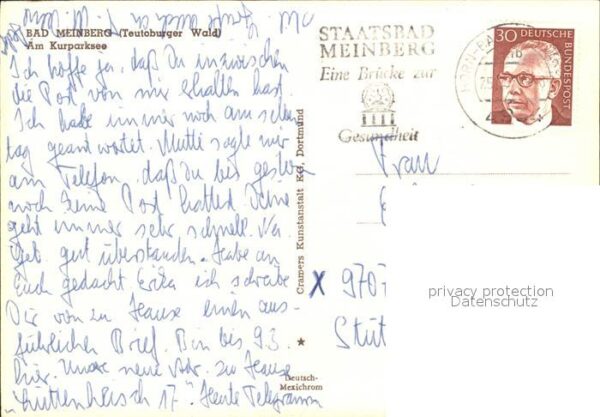 BAD MEINBERG (Teutoburger Wald)
Am Kurparksee
Ich hoffe ja, daß Du inzwischen
die Post von mir erhalten hast.
Ich habe immer noch am selben
tag geantwortet. Mutti sagte mir
am Telefon, daß du bis gestern
noch keine Post hattest. Deine
geht immer sehr schnell.
gut überstanden. Habe an
Euch gedacht Erika ich schreibe
Dir von zu Hause einen aus-
führlichen Brief. Bin bis 9.3.
hier. Unsere neue Adr. zu Hause
17". Heute Telegramm
Cramers Kunstanstalt KG, Dortmund
★
Deutsch-
Mexichrom
STAATSBAD
MEINBERG
Eine Brücke zur
Gesundheit
30 DEUTSCHE
BUNDESPOST
Frau
X 970
privacy protection
Datenschutz